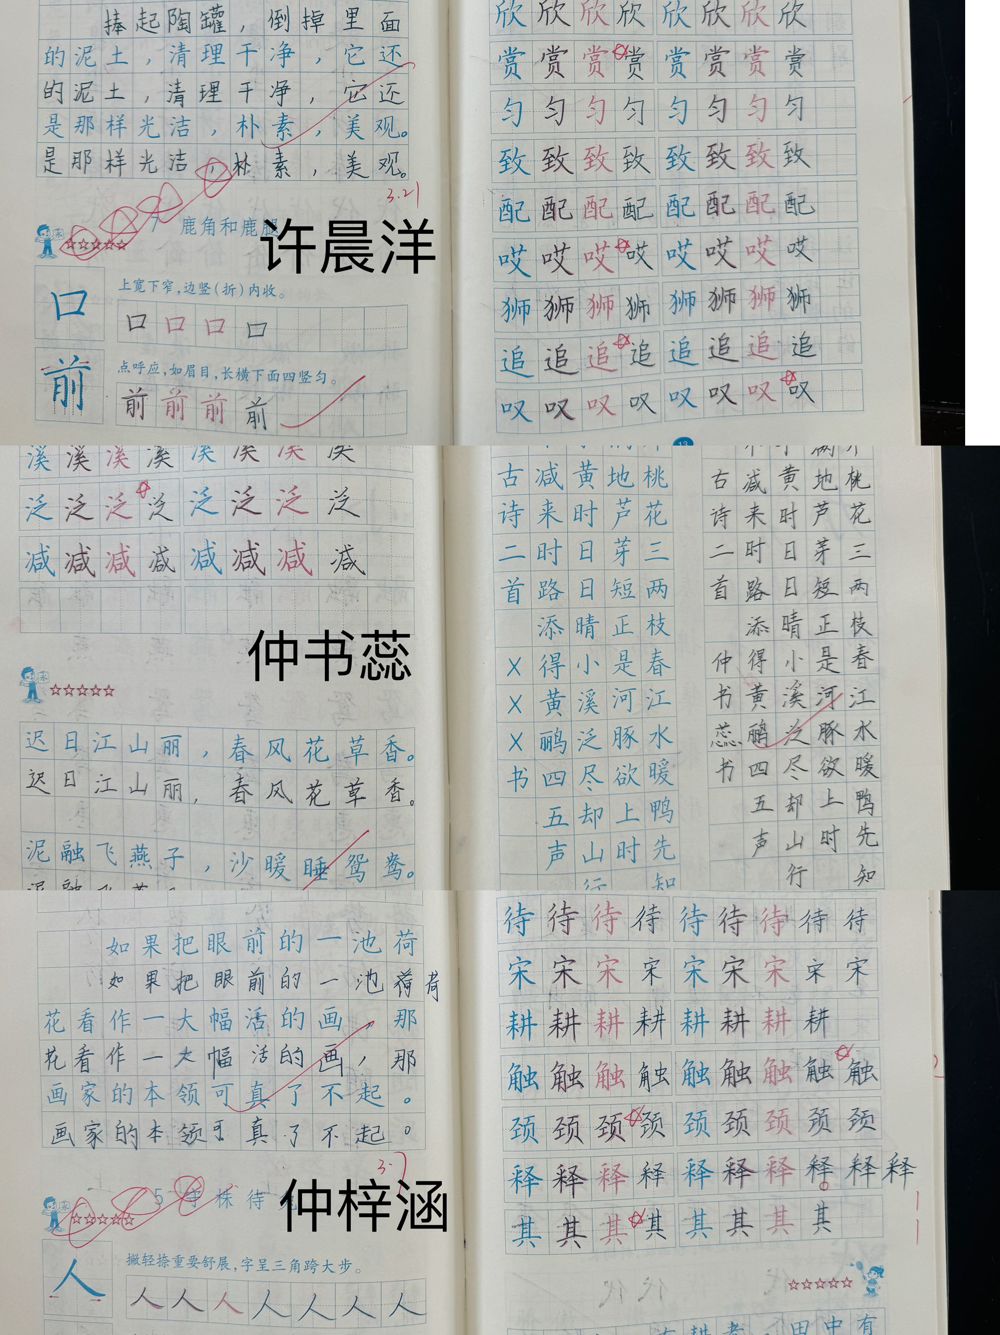 捧起陶罐，倒掉里面
的泥土，清理干净，它还
的泥土，清理干净，它还
是那样光洁，朴素，美观。
是那样光洁，朴素，美观。
3.21
鹿角和鹿腿
许晨洋
口
上宽下窄，边竖(折)内收。
口口口口
前
点呼应，如眉目，长横下面四竖匀。
前前前前
欣欣欣欣欣欣欣欣
赏赏赏赏赏赏赏赏
匀匀匀匀匀匀匀匀
致致致致致致致致
配配配配配配配配
哎哎哎哎哎哎哎哎
狮狮狮狮狮狮狮狮
追追追追追追追追
叹叹叹叹叹叹叹叹
13
溪溪溪溪溪溪溪溪
泛泛泛泛泛泛泛泛
减减减减减减减减
仲书蕊
迟日江山丽，春风花草香。
迟日江山丽，春风花草香。
泥融飞燕子，沙暖睡鸳鸯。
古诗二首
XXX书
减来时路添得黄鹂四五声
黄时日日晴小溪泛尽却山行
地芦芽短正是河豚欲上时
桃花三两枝春江水暖鸭先知
古诗二首
仲书蕊书
减来时路添得黄鹂四五声
黄时日日晴小溪泛尽却山行
地芦芽短正是河豚欲上时
桃花三两枝春江水暖鸭先知
如果把眼前的一池荷
如果把眼前的一池荷荷
花看作一大幅活的画，那
花看作一大幅活的画，那
画家的本领可真了不起。
画家的本领可真了不起。
3.7
5 守株待兔
仲梓涵
人
撇轻捺重要舒展，字呈三角跨大步。
人人人人人人人
待待待待待待待待待
宋宋宋宋宋宋宋宋宋
耕耕耕耕耕耕耕耕
触触触触触触触触触
颈颈颈颈颈颈颈颈颈
释释释释释释释释释释
其其其其其其其其